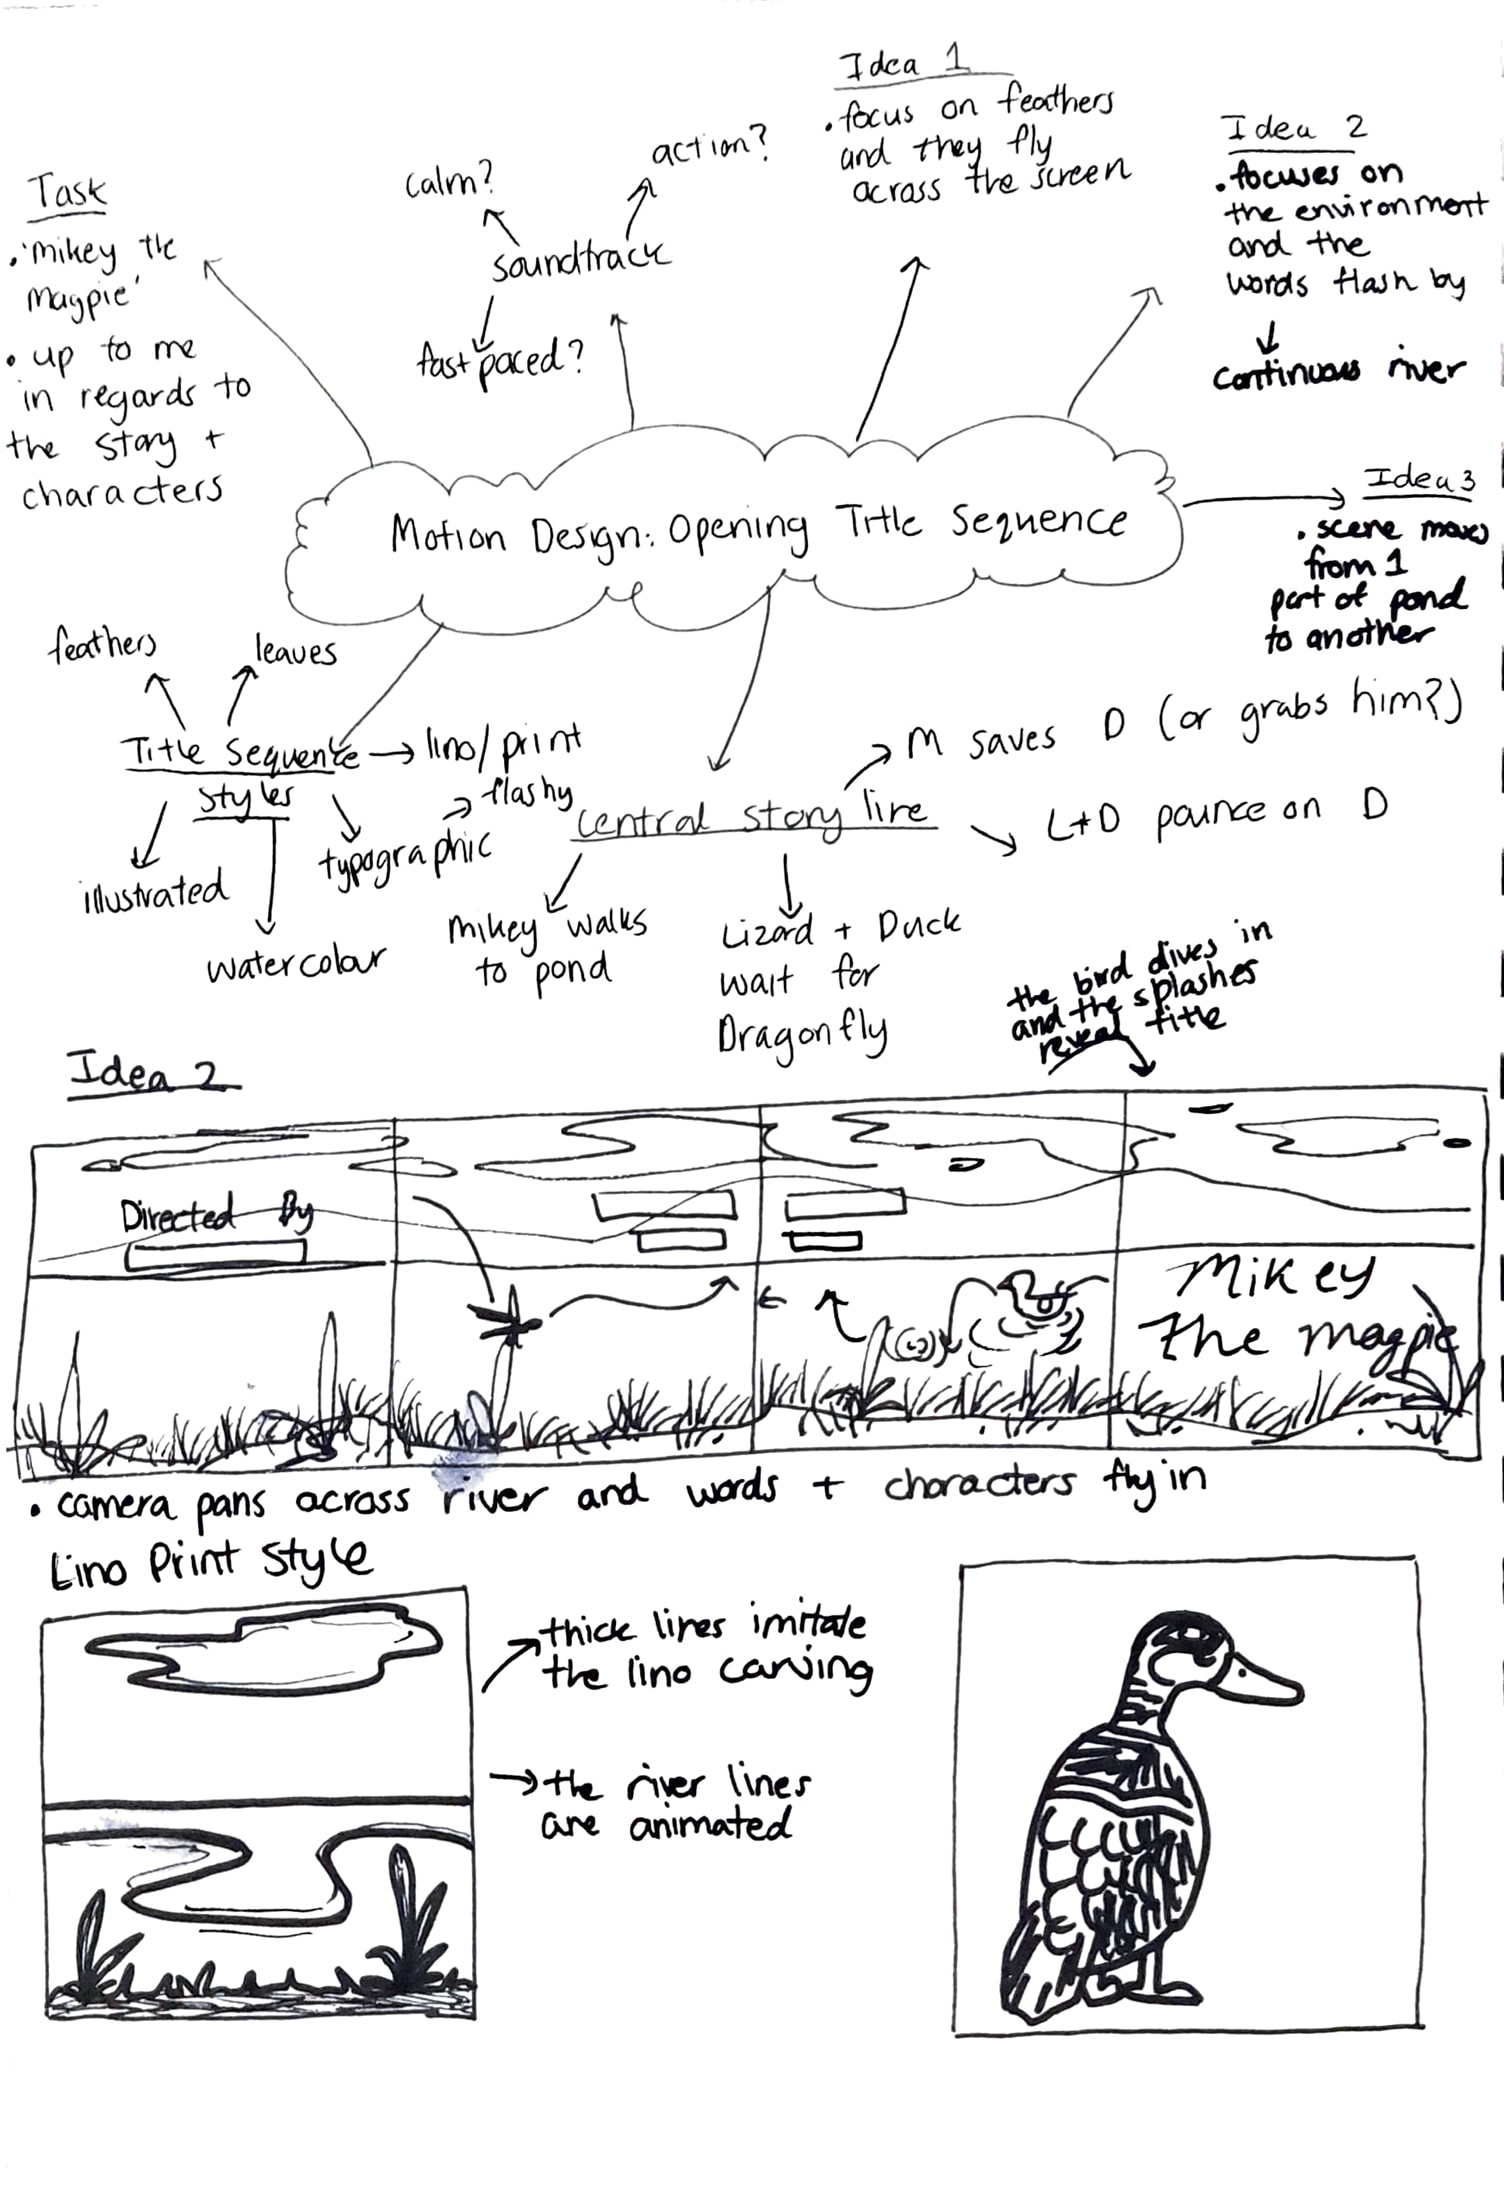 Idea 1
. focus on feathers
and they fly
across the screen
Idea 2
. focuses on
the environment
and the
words flash by
continuous river
action?
calm?
soundtrack
fast paced?
Task
. 'mikey the
magpie'
. up to me
in regards to
the story +
characters
Motion Design: Opening Title Sequence
Idea 3
. scene moves
from 1
part of pond
to another
feathers
leaves
Title Sequence
styles
lino/print
flashy
typographic
illustrated
watercolour
central story line
M saves D (or grabs him?)
L+D pounce on D
mikey walks
to pond
Lizard + Duck
wait for
Dragonfly
the bird dives in
and the splashes
reveal title
Idea 2
Directed By
Mikey
The magpie
. camera pans across river and words + characters fly in
Lino Print Style
thick lines imitate
the lino carving
the river lines
are animated